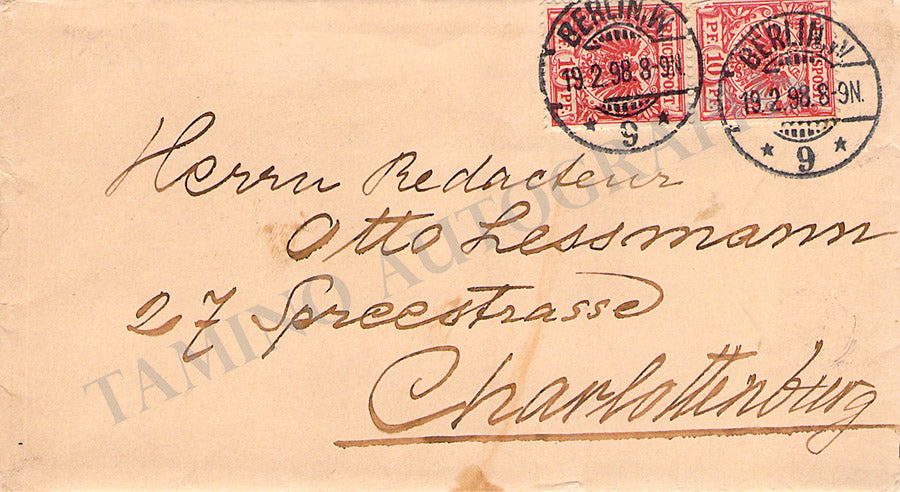 BERLIN.W.
19.2.98.8-9N.
* 9 *
REICHSPOST
10 PF
BERLIN.W.
19.2.98.8-9N.
* 9 *
10 PF
Herrn Redacteur
Otto Lessmann
27 Spreestrasse
Charlottenburg
TAMINO AUTOGRAPHS